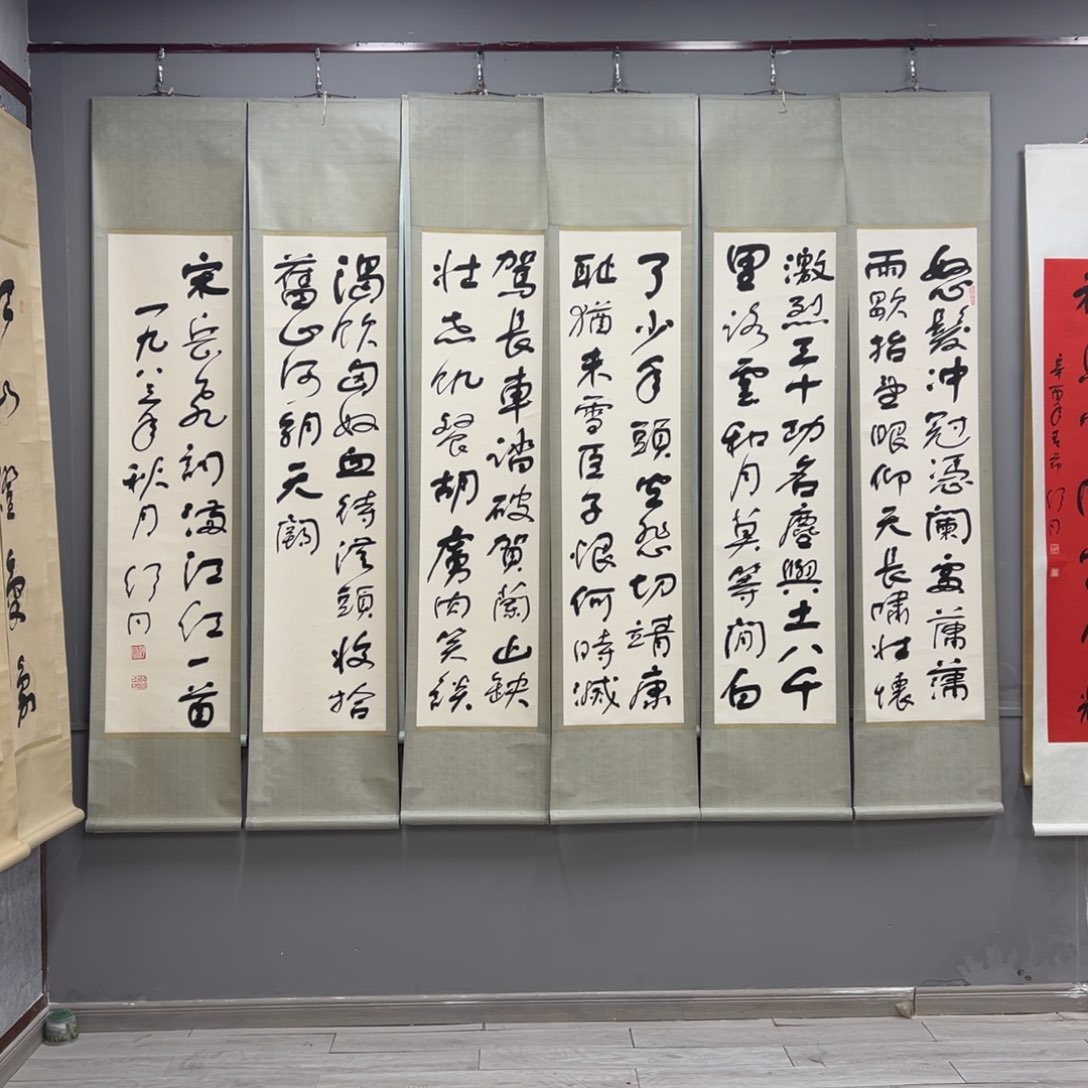 怒髮冲冠憑闌處瀟瀟
雨歇抬望眼仰天長嘯壯懷
激烈三十功名塵與土八千
里路雲和月莫等閒白
了少年頭空悲切靖康
耻猶未雪臣子恨何時滅
駕長車踏破賀蘭山缺
壯志飢餐胡虜肉笑談
渴飲匈奴血待從頭收拾
舊山河朝天闕
宋岳飛詞滿江紅一首
一九八三年秋月 舒同
辛酉年春節 舒同